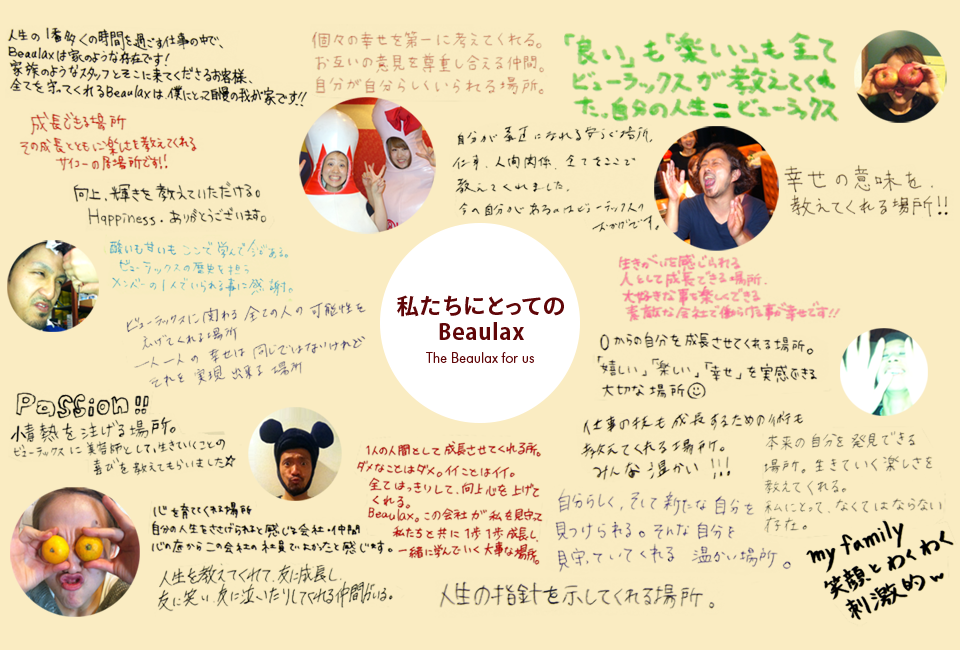 人生の1番多くの時間を過ごす仕事の中で、
Beaulaxは家のような存在です!
家族のようなスタッフとそこに来てくださるお客様、
全てを守ってくれるBeaulaxは、僕にとって自慢の我が家です!!
個々の幸せを第一に考えてくれる。
お互いの意見を尊重し合える仲間。
自分が自分らしくいられる場所。
「良い」も「楽しい」も全て
ビューラックスが教えてくれ
た。自分の人生=ビューラックス
成長できる場所
その成長とともに楽しさを教えてくれる
サイコーの居場所です!!
向上、輝きを教えていただける。
Happiness. ありがとうございます。
自分が素直になれる場所。
仕事、人間関係、全てをここで
教えてくれました。
今の自分があるのはビューラックスの
おかげです。
幸せの意味を、
教えてくれる場所!!
酸いも甘いもここで学んで今がある。
ビューラックスの歴史を担う
メンバーの1人でいられる事に感謝。
ビューラックスに関わる全ての人の可能性を
広げてくれる場所
一人一人の幸せは同じではないけれど
それを実現出来る場所
私たちにとっての
Beaulax
The Beaulax for us
生きがいを感じられる
人として成長できる場所、
大好きな事を楽しくできる
素敵な会社で働らける事が幸せです!!
0からの自分を成長させてくれる場所。
「嬉しい」「楽しい」「幸せ」を実感できる
大切な場所☺
Passion!!
情熱を注げる場所。
ビューラックスに美容師として、生きていくことの
喜びを教えてもらいました☆
1人の人間として成長させてくれる所。
ダメなことはダメ。イイことはイイ。
全てはっきりして、向上心を上げて
くれる。
Beaulax。この会社が私を見守って
私たちと共に1歩1歩成長し、
一緒に学んでいく大事な場所。
仕事の技も成長するための術も
教えてくれる場所。
みんな温かい!!!
本来の自分を発見できる
場所。生きていく楽しさを
教えてくれる。
私にとって、なくてはならない
存在。
心を育ててくれる場所
自分の人生をささげられると感じる会社・仲間
心の底からこの会社の社員でよかったと感じます。
自分らしく、そして新たな自分を
見つけられる。そんな自分を
見守っていてくれる 温かい場所。
人生を教えてくれて、友に成長し、
友に笑い、友に泣いたりしてくれる仲間がいる。
人生の指針を示してくれる場所。
my family
笑顔とわくわく
刺激的